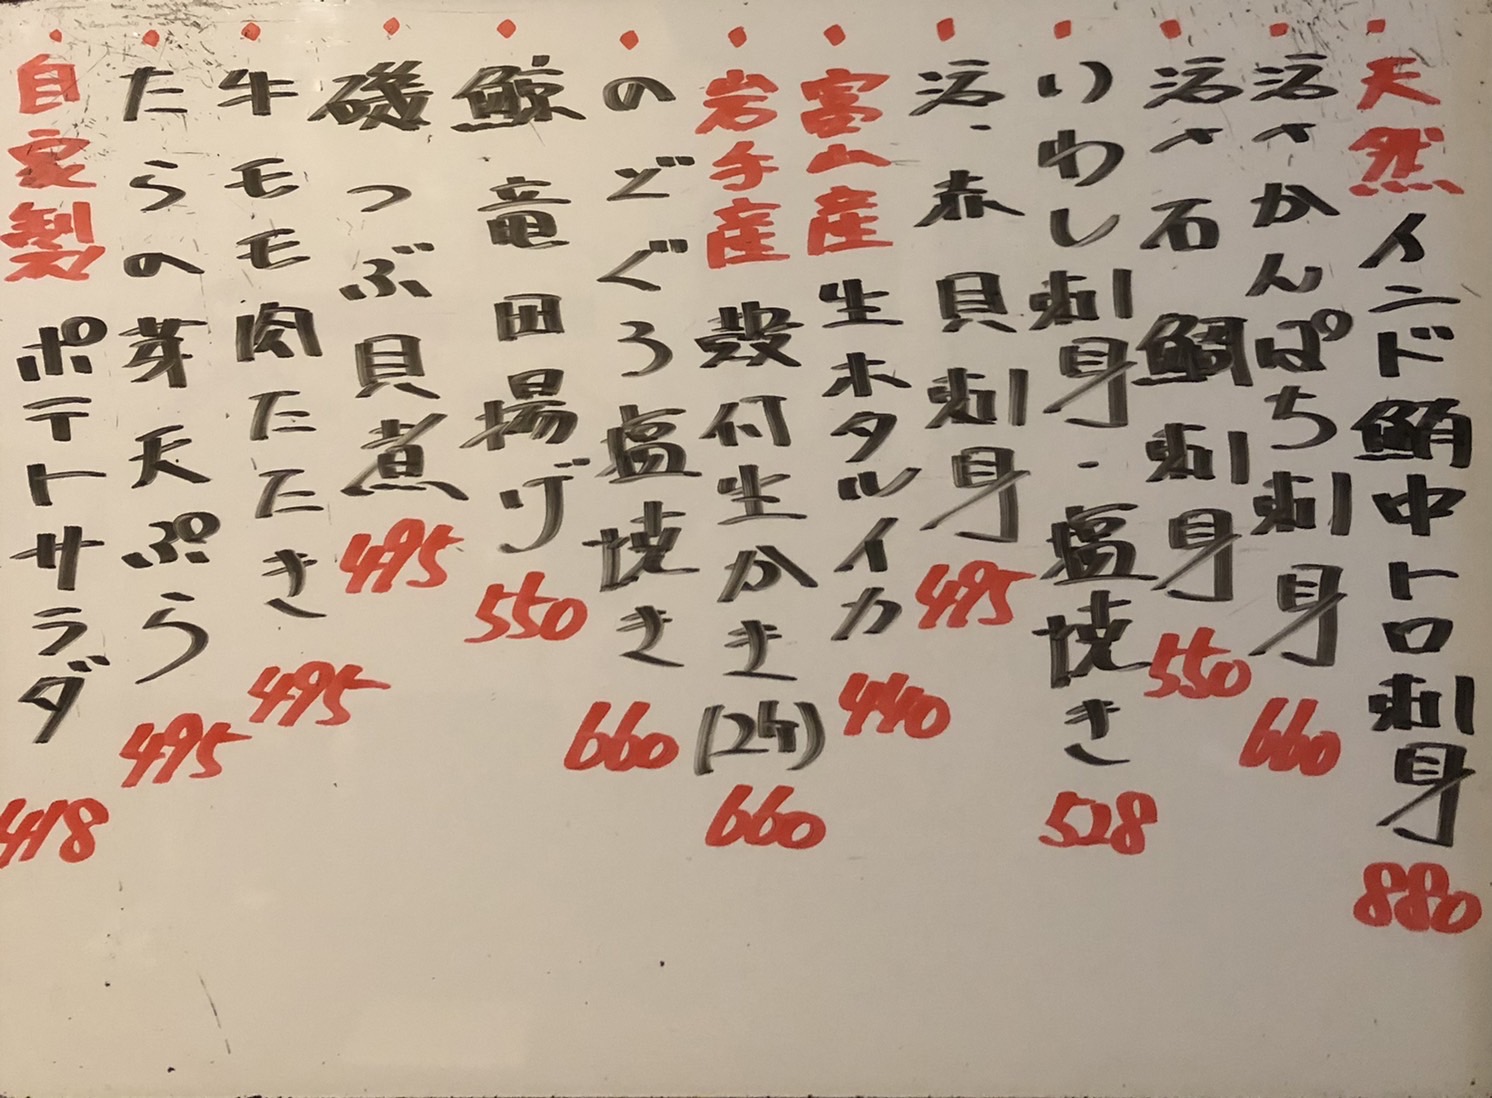 天然インド鮪中トロ刺身 880
活〆かんぱち刺身 660
活〆石鯛刺身 550
いわし刺身・塩焼き 528
活・赤貝刺身 495
富山産生ホタルイカ 440
岩手産殻付生かき(2ケ) 660
のどぐろ塩焼き 660
鯨竜田揚げ 550
磯つぶ貝煮 495
牛モモ肉たたき 495
たらの芽天ぷら 495
自家製ポテトサラダ 418